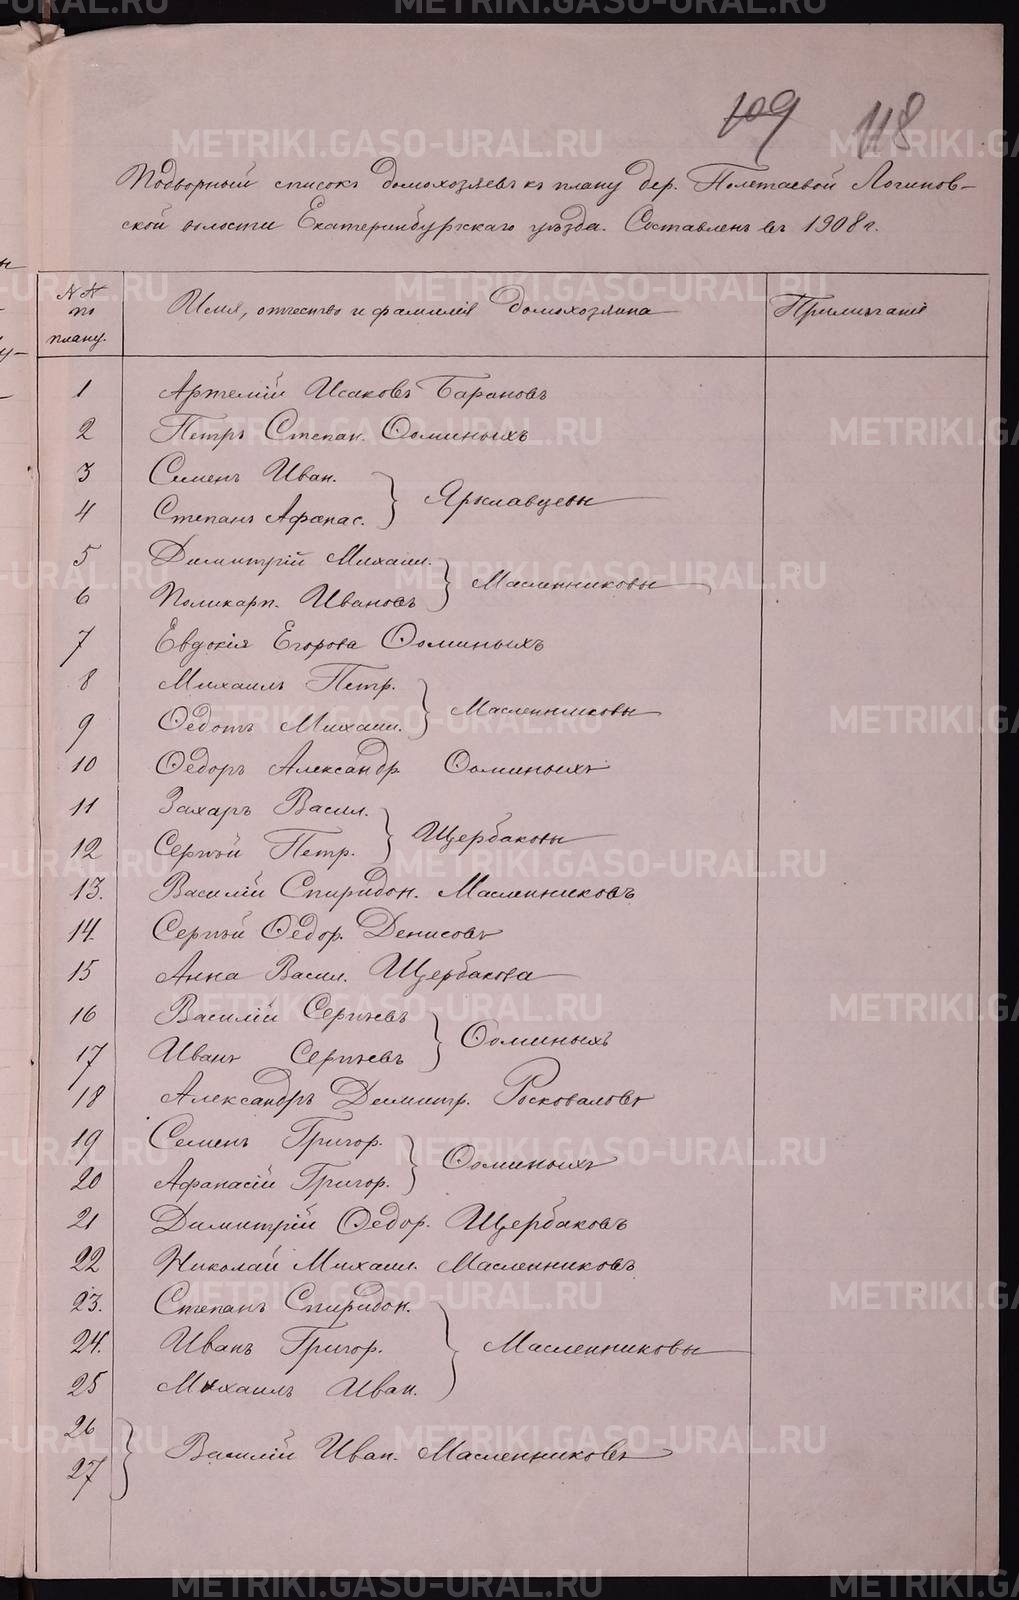 109 118
Подворный списокъ домохозяевъ къ плану дер. Полетаевой Логинов-
ской волости Екатеринбургскаго уѣзда. Составленъ въ 1908 г.
№№ по плану. Имя, отчество и фамилія домохозяина Примѣчанія
1 Артемій Исаковъ Барановъ
2 Петръ Степан. Ѳоминыхъ
3 Семенъ Иван.
4 Степанъ Афонас. } Ярославцевы
5 Димитрій Михаил.
6 Поликарп. Ивановъ } Масленниковы
7 Евдокія Егорова Ѳоминыхъ
8 Михаилъ Петр.
9 Ѳедотъ Михаил. } Масленниковы
10 Ѳедоръ Александр. Ѳоминыхъ
11 Захаръ Васил.
12 Сергѣй Петр. } Щербаковы
13. Василій Спиридон. Масленниковъ
14. Сергѣй Ѳедор. Денисовъ
15 Анна Васил. Щербакова
16 Василій Сергѣевъ
17 Иванъ Сергѣевъ } Ѳоминыхъ
18 Александръ Димитр. Росковаловъ
19 Семенъ Григор.
20 Афанасій Григор. } Ѳоминыхъ
21 Димитрій Ѳедор. Щербаковъ
22 Николай Михаил. Масленниковъ
23. Степанъ Спиридон.
24. Иванъ Григор. } Масленниковы
25 Михаилъ Иван.
26
27 } Василій Иван. Масленниковъ
METRIKI.GASO-URAL.RU